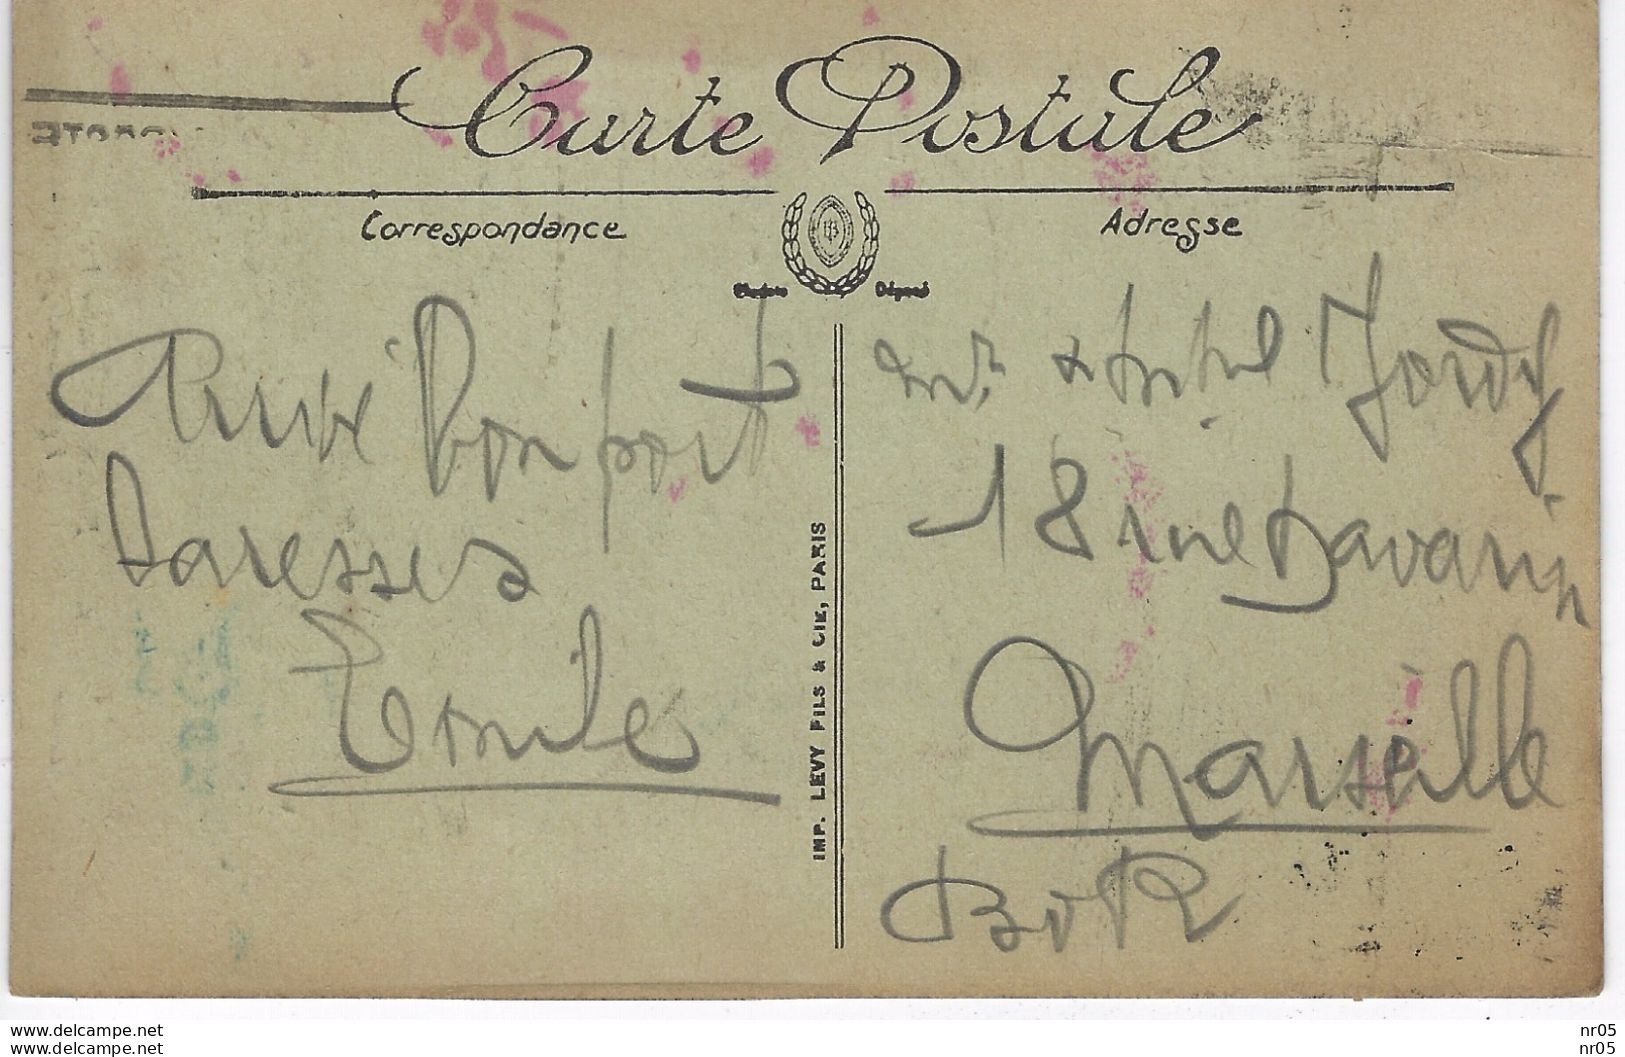 Carte Postale
Correspondance
Adresse
Modèle Déposé
Arrivé bon port
Caresses
Emile
IMP. LÉVY FILS & CIE, PARIS
Mr Jordy
18 rue
Marseille
B d R
www.delcampe.net
nr05
www.delcampe.net
nr05